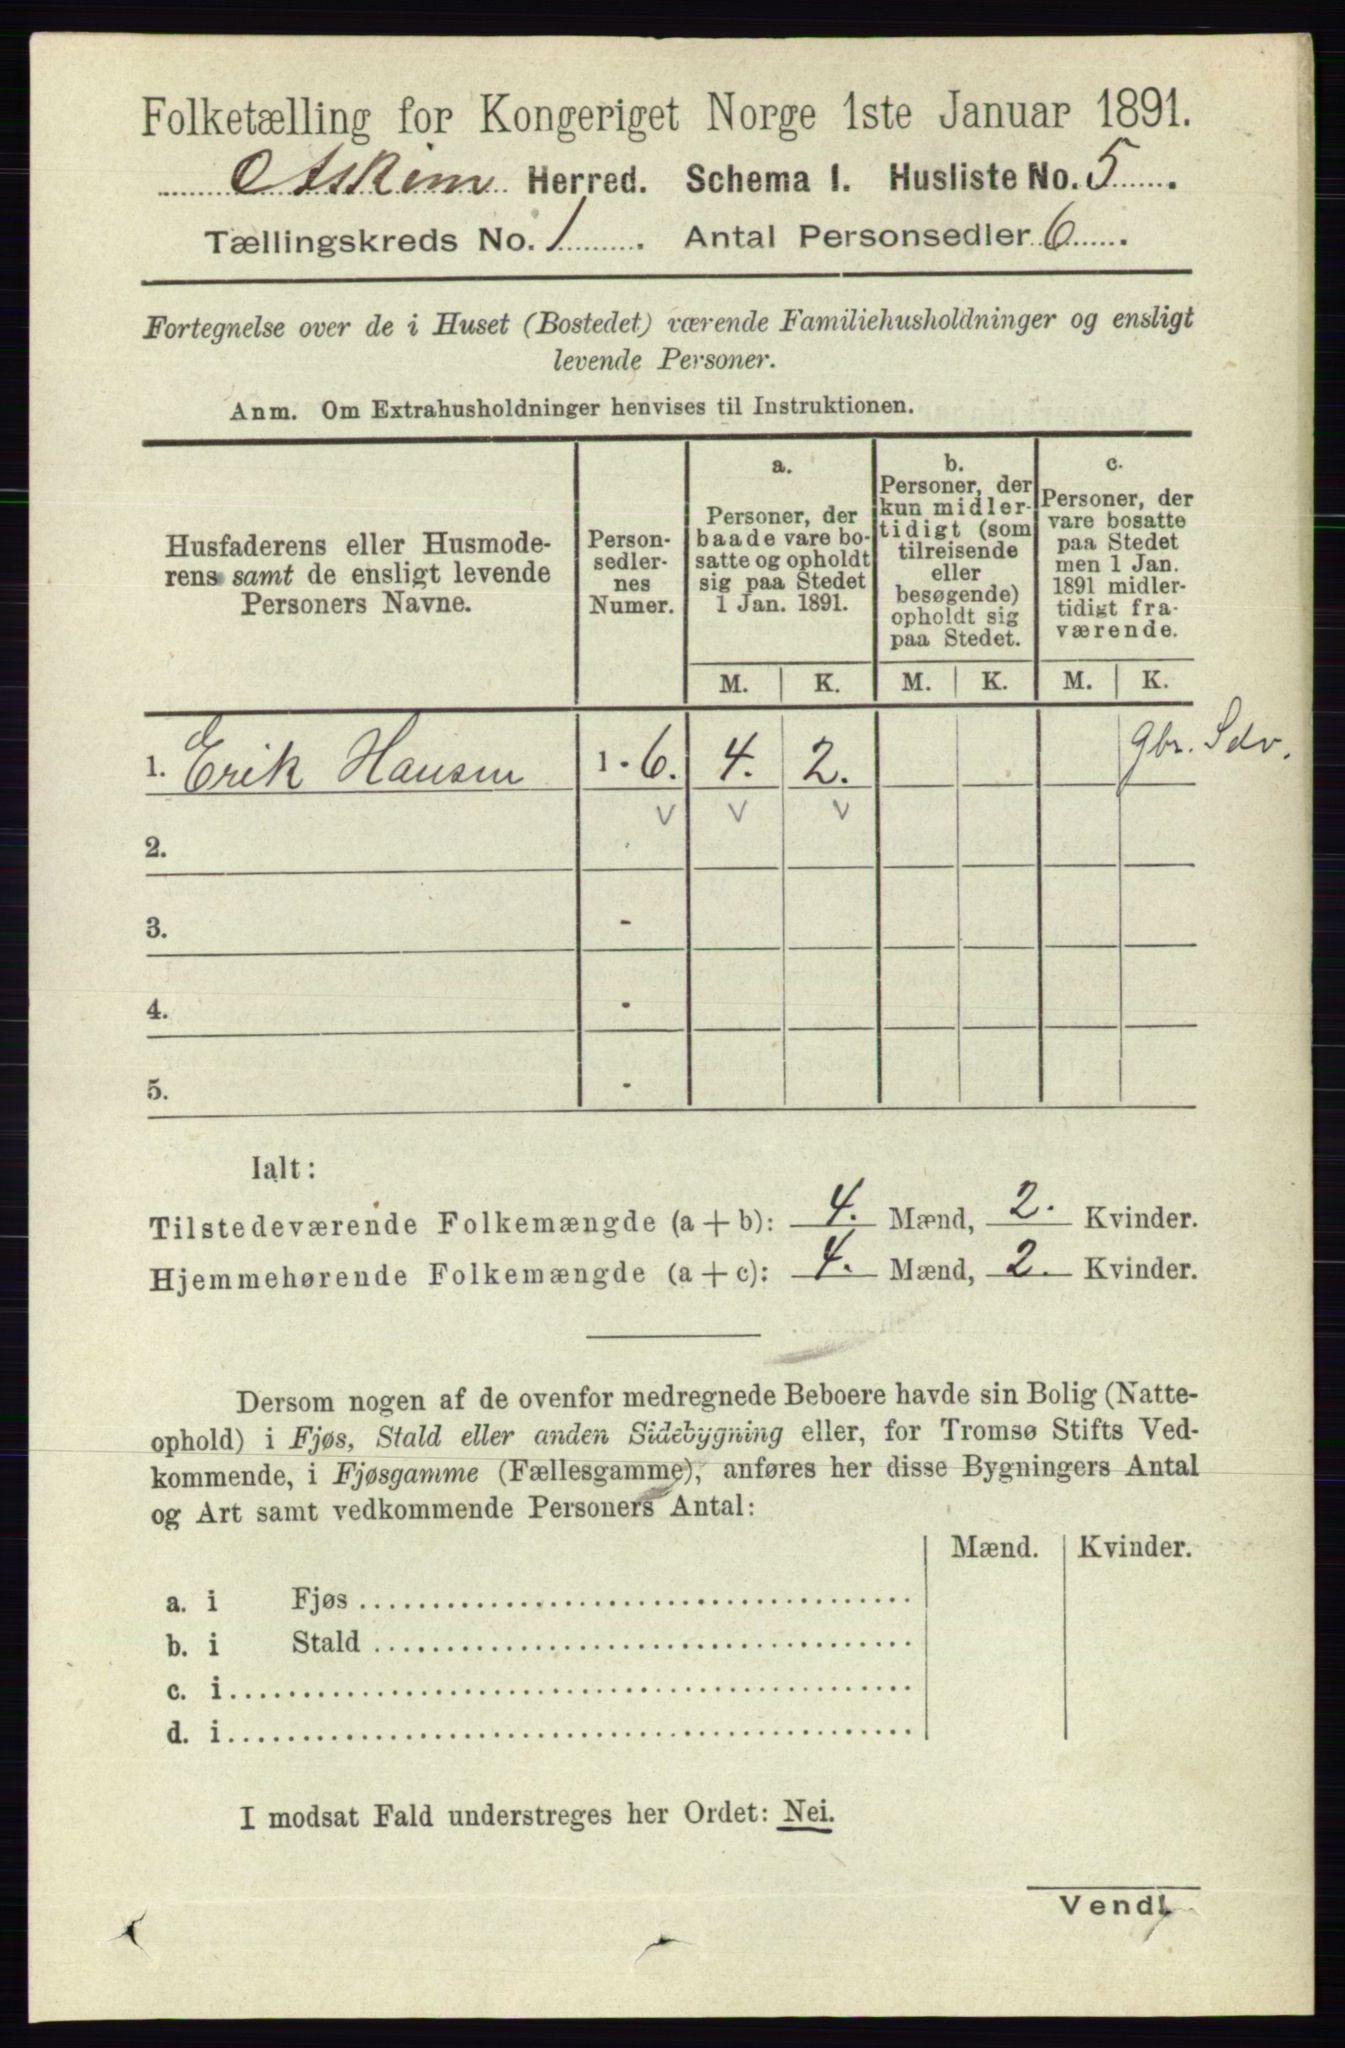 Folketælling for Kongeriget Norge 1ste Januar 1891.
Askim Herred. Schema 1. Husliste No. 5.
Tællingskreds No. 1. Antal Personsedler 6.
Fortegnelse over de i Huset (Bostedet) værende Familiehusholdninger og ensligt
levende Personer.
Anm. Om Extrahusholdninger henvises til Instruktionen.
Husfaderens eller Husmode-
rens samt de ensligt levende
Personers Navne.
Person-
sedler-
nes
Numer.
a.
Personer, der
baade vare bo-
satte og opholdt
sig paa Stedet
1 Jan. 1891.
b.
Personer, der
kun midler-
tidigt (som
tilreisende
eller
besøgende)
opholdt sig
paa Stedet.
c.
Personer, der
vare bosatte
paa Stedet
men 1 Jan.
1891 midler-
tidigt fra-
værende.
M. K. M. K. M. K.
1. Erik Hansen 1 - 6. 4. 2. gbr. Sdv.
v v v
2.
3. -
4. -
5. -
Ialt:
Tilstedeværende Folkemængde (a + b): 4. Mænd, 2. Kvinder.
Hjemmehørende Folkemængde (a + c): 4. Mænd, 2. Kvinder.
Dersom nogen af de ovenfor medregnede Beboere havde sin Bolig (Natte-
ophold) i Fjøs, Stald eller anden Sidebygning eller, for Tromsø Stifts Ved-
kommende, i Fjøsgamme (Fællesgamme), anføres her disse Bygningers Antal
og Art samt vedkommende Personers Antal:
Mænd. Kvinder.
a. i Fjøs
b. i Stald
c. i
d. i
I modsat Fald understreges her Ordet: Nei.
Vend!